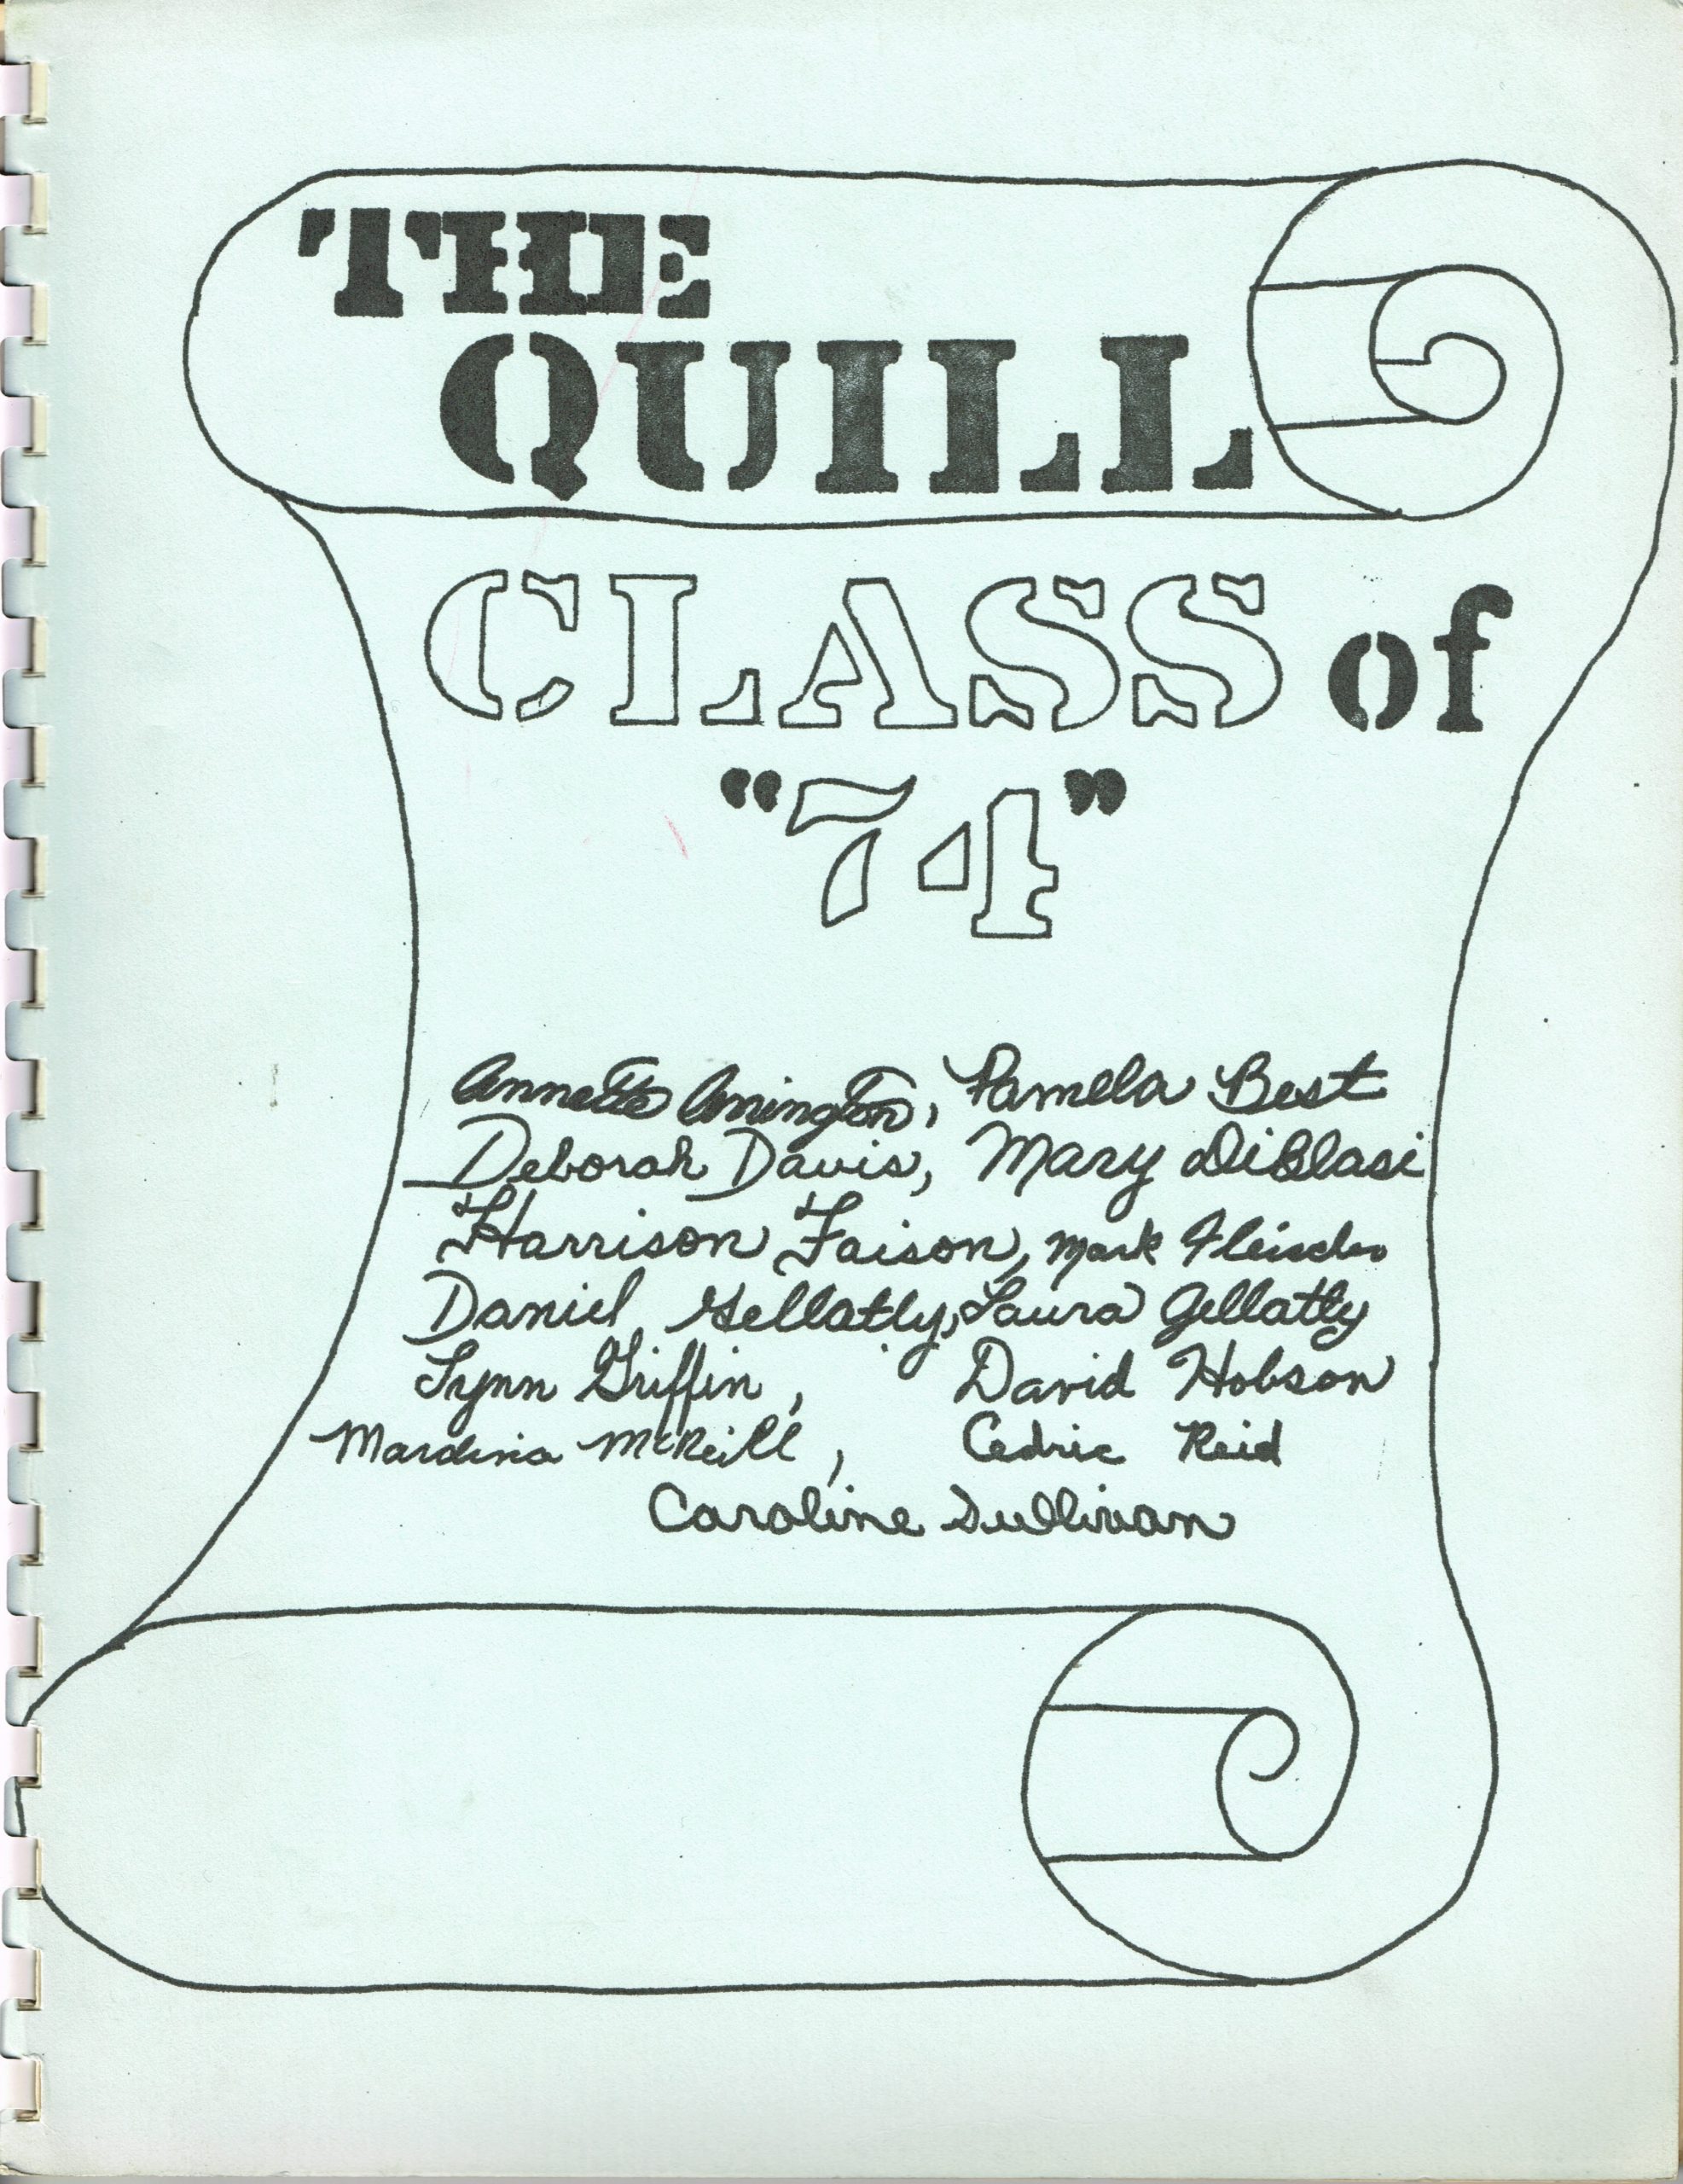 THE
QUILL
CLASS of
"74"
Annette Arrington, Pamela Best
Deborah Davis, Mary DiBlasi
Harrison Faison, Mark Fleischer
Daniel Gellatly, Laura Gellatly
Lynn Griffin, David Hobson
Mardina McNeill, Cedric Reid
Caroline Sullivan